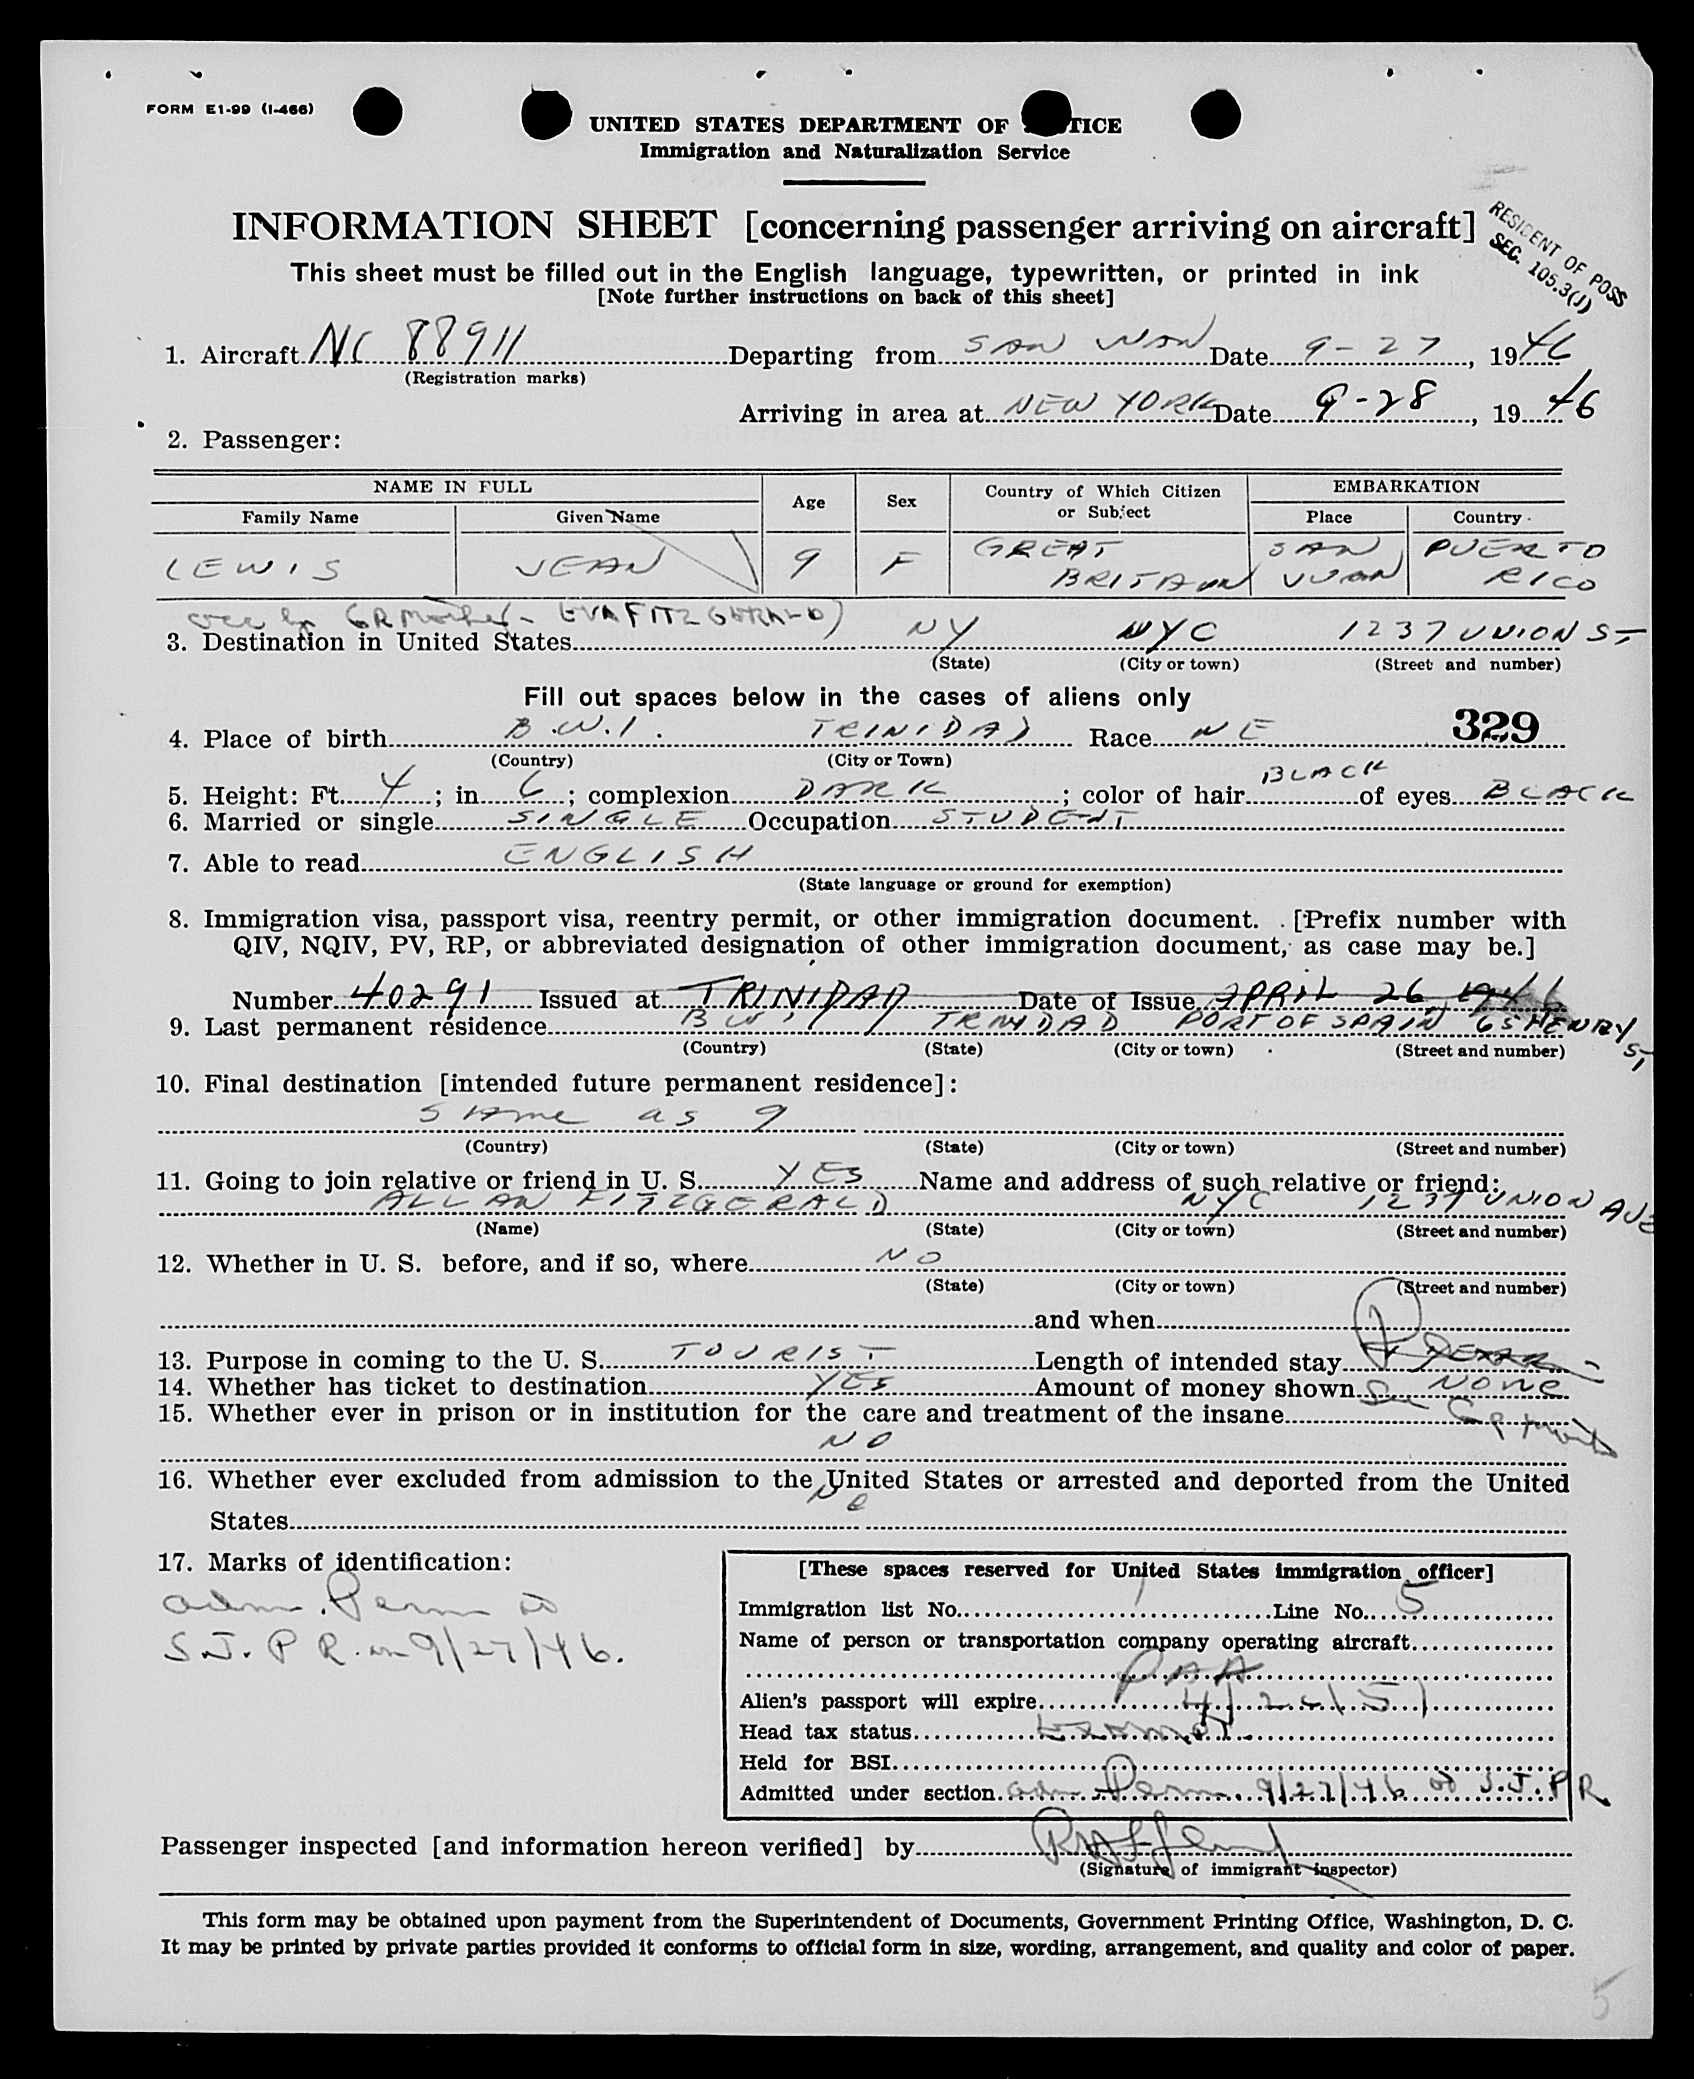 FORM E1-99 (I-466)
UNITED STATES DEPARTMENT OF TICE
Immigration and Naturalization Service
INFORMATION SHEET [concerning passenger arriving on aircraft]
RESIDENT OF POSS
SEC. 105.3(J)
This sheet must be filled out in the English language, typewritten, or printed in ink
[Note further instructions on back of this sheet]
1. Aircraft NC 88911 Departing from SAN JUAN Date 9-27, 1946
(Registration marks)
Arriving in area at NEW YORK Date 9-28, 1946
2. Passenger:
NAME IN FULL Age Sex Country of Which Citizen or Subject EMBARKATION
Family Name Given Name Place Country
LEWIS JEAN 9 F GREAT BRITAIN SAN JUAN PUERTO RICO
acc by GR Mother - EVA FITZGERALD)
3. Destination in United States NY NYC 1237 UNION ST
(State) (City or town) (Street and number)
Fill out spaces below in the cases of aliens only
4. Place of birth B.W.I. TRINIDAD Race NE 329
(Country) (City or Town)
5. Height: Ft. 4; in. 6; complexion DARK; color of hair BLACK of eyes BLACK
6. Married or single SINGLE Occupation STUDENT
7. Able to read ENGLISH
(State language or ground for exemption)
8. Immigration visa, passport visa, reentry permit, or other immigration document. [Prefix number with
QIV, NQIV, PV, RP, or abbreviated designation of other immigration document, as case may be.]
Number 40291 Issued at TRINIDAD Date of Issue APRIL 26, 1946
9. Last permanent residence BWI TRINIDAD PORT OF SPAIN 65 HENRY ST
(Country) (State) (City or town) (Street and number)
10. Final destination [intended future permanent residence]:
Same as 9
(Country) (State) (City or town) (Street and number)
11. Going to join relative or friend in U. S. YES Name and address of such relative or friend:
ALLAN FITZGERALD NYC 1237 UNION AVE
(Name) (State) (City or town) (Street and number)
12. Whether in U. S. before, and if so, where NO
(State) (City or town) (Street and number)
and when
13. Purpose in coming to the U. S. TOURIST Length of intended stay
14. Whether has ticket to destination YES Amount of money shown NONE
15. Whether ever in prison or in institution for the care and treatment of the insane
NO
16. Whether ever excluded from admission to the United States or arrested and deported from the United
States No
17. Marks of identification:
adm. Perm at
S.J. P R. on 9/27/46.
[These spaces reserved for United States immigration officer]
Immigration list No. 1 Line No. 5
Name of person or transportation company operating aircraft
PAA
Alien's passport will expire 4/26/51
Head tax status Exempt
Held for BSI
Admitted under section adm Perm 9/27/46 at S.J.P R
Passenger inspected [and information hereon verified] by
(Signature of immigrant inspector)
This form may be obtained upon payment from the Superintendent of Documents, Government Printing Office, Washington, D. C.
It may be printed by private parties provided it conforms to official form in size, wording, arrangement, and quality and color of paper.
5